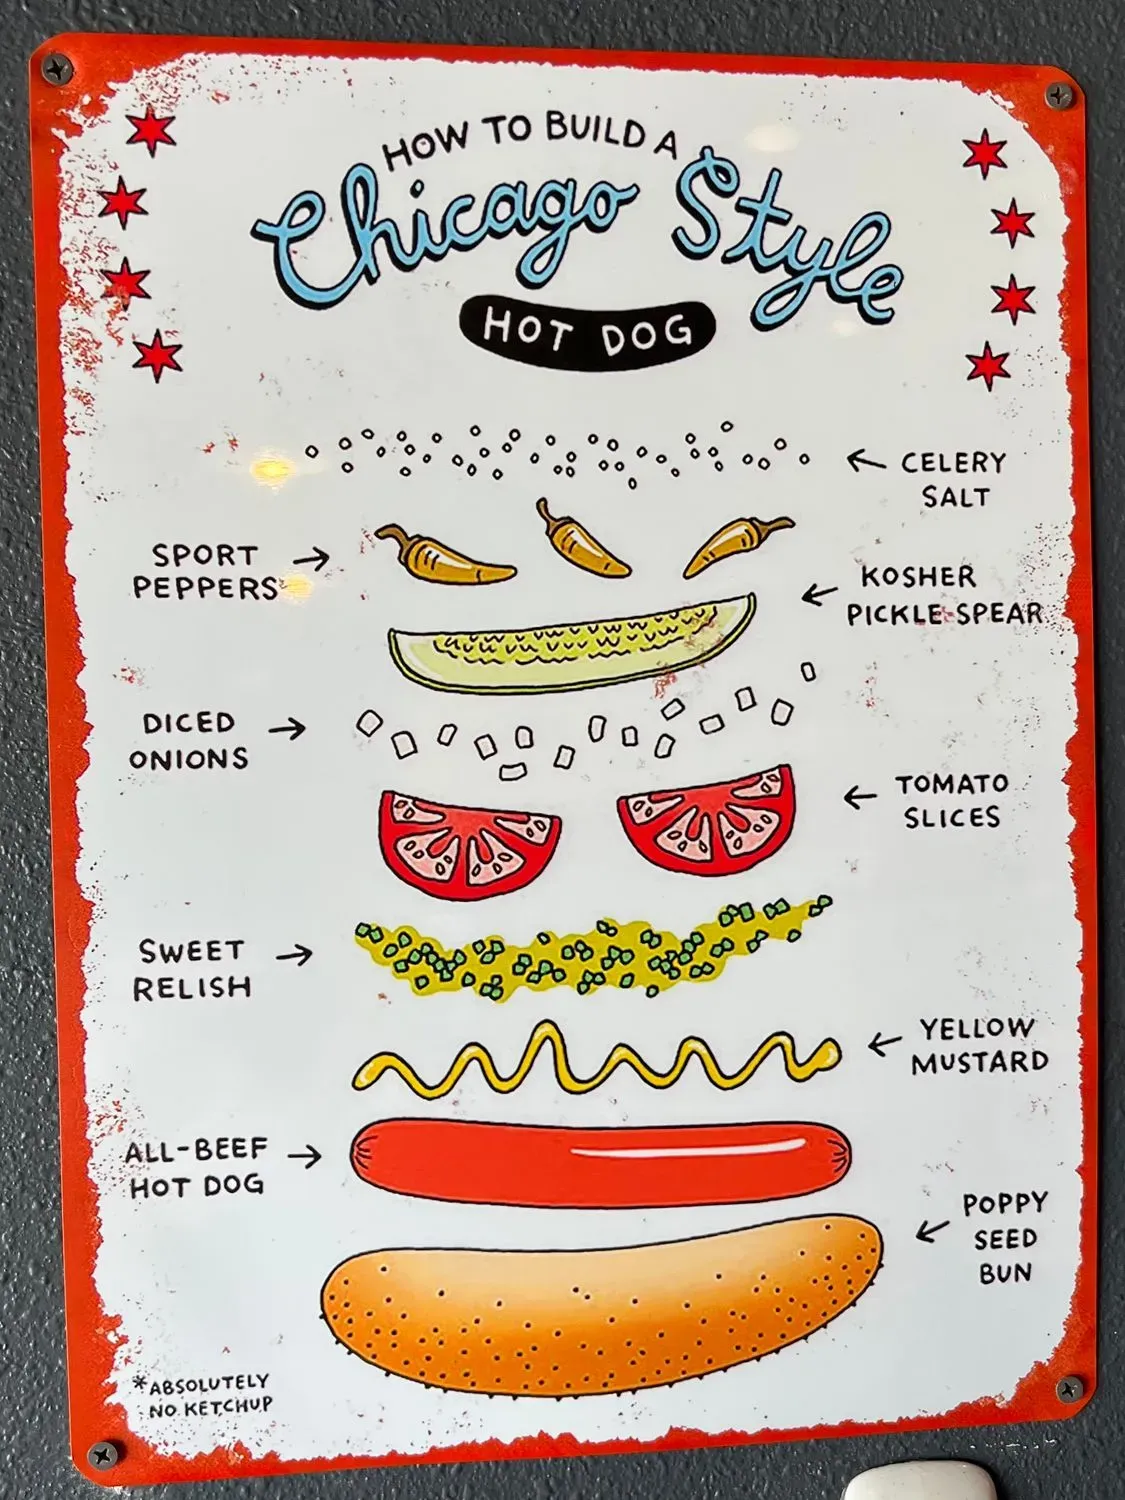 HOW TO BUILD A
Chicago Style
HOT DOG
CELERY
SALT
SPORT
PEPPERS
KOSHER
PICKLE SPEAR
DICED
ONIONS
TOMATO
SLICES
SWEET
RELISH
YELLOW
MUSTARD
ALL-BEEF
HOT DOG
POPPY
SEED
BUN
*ABSOLUTELY
NO KETCHUP